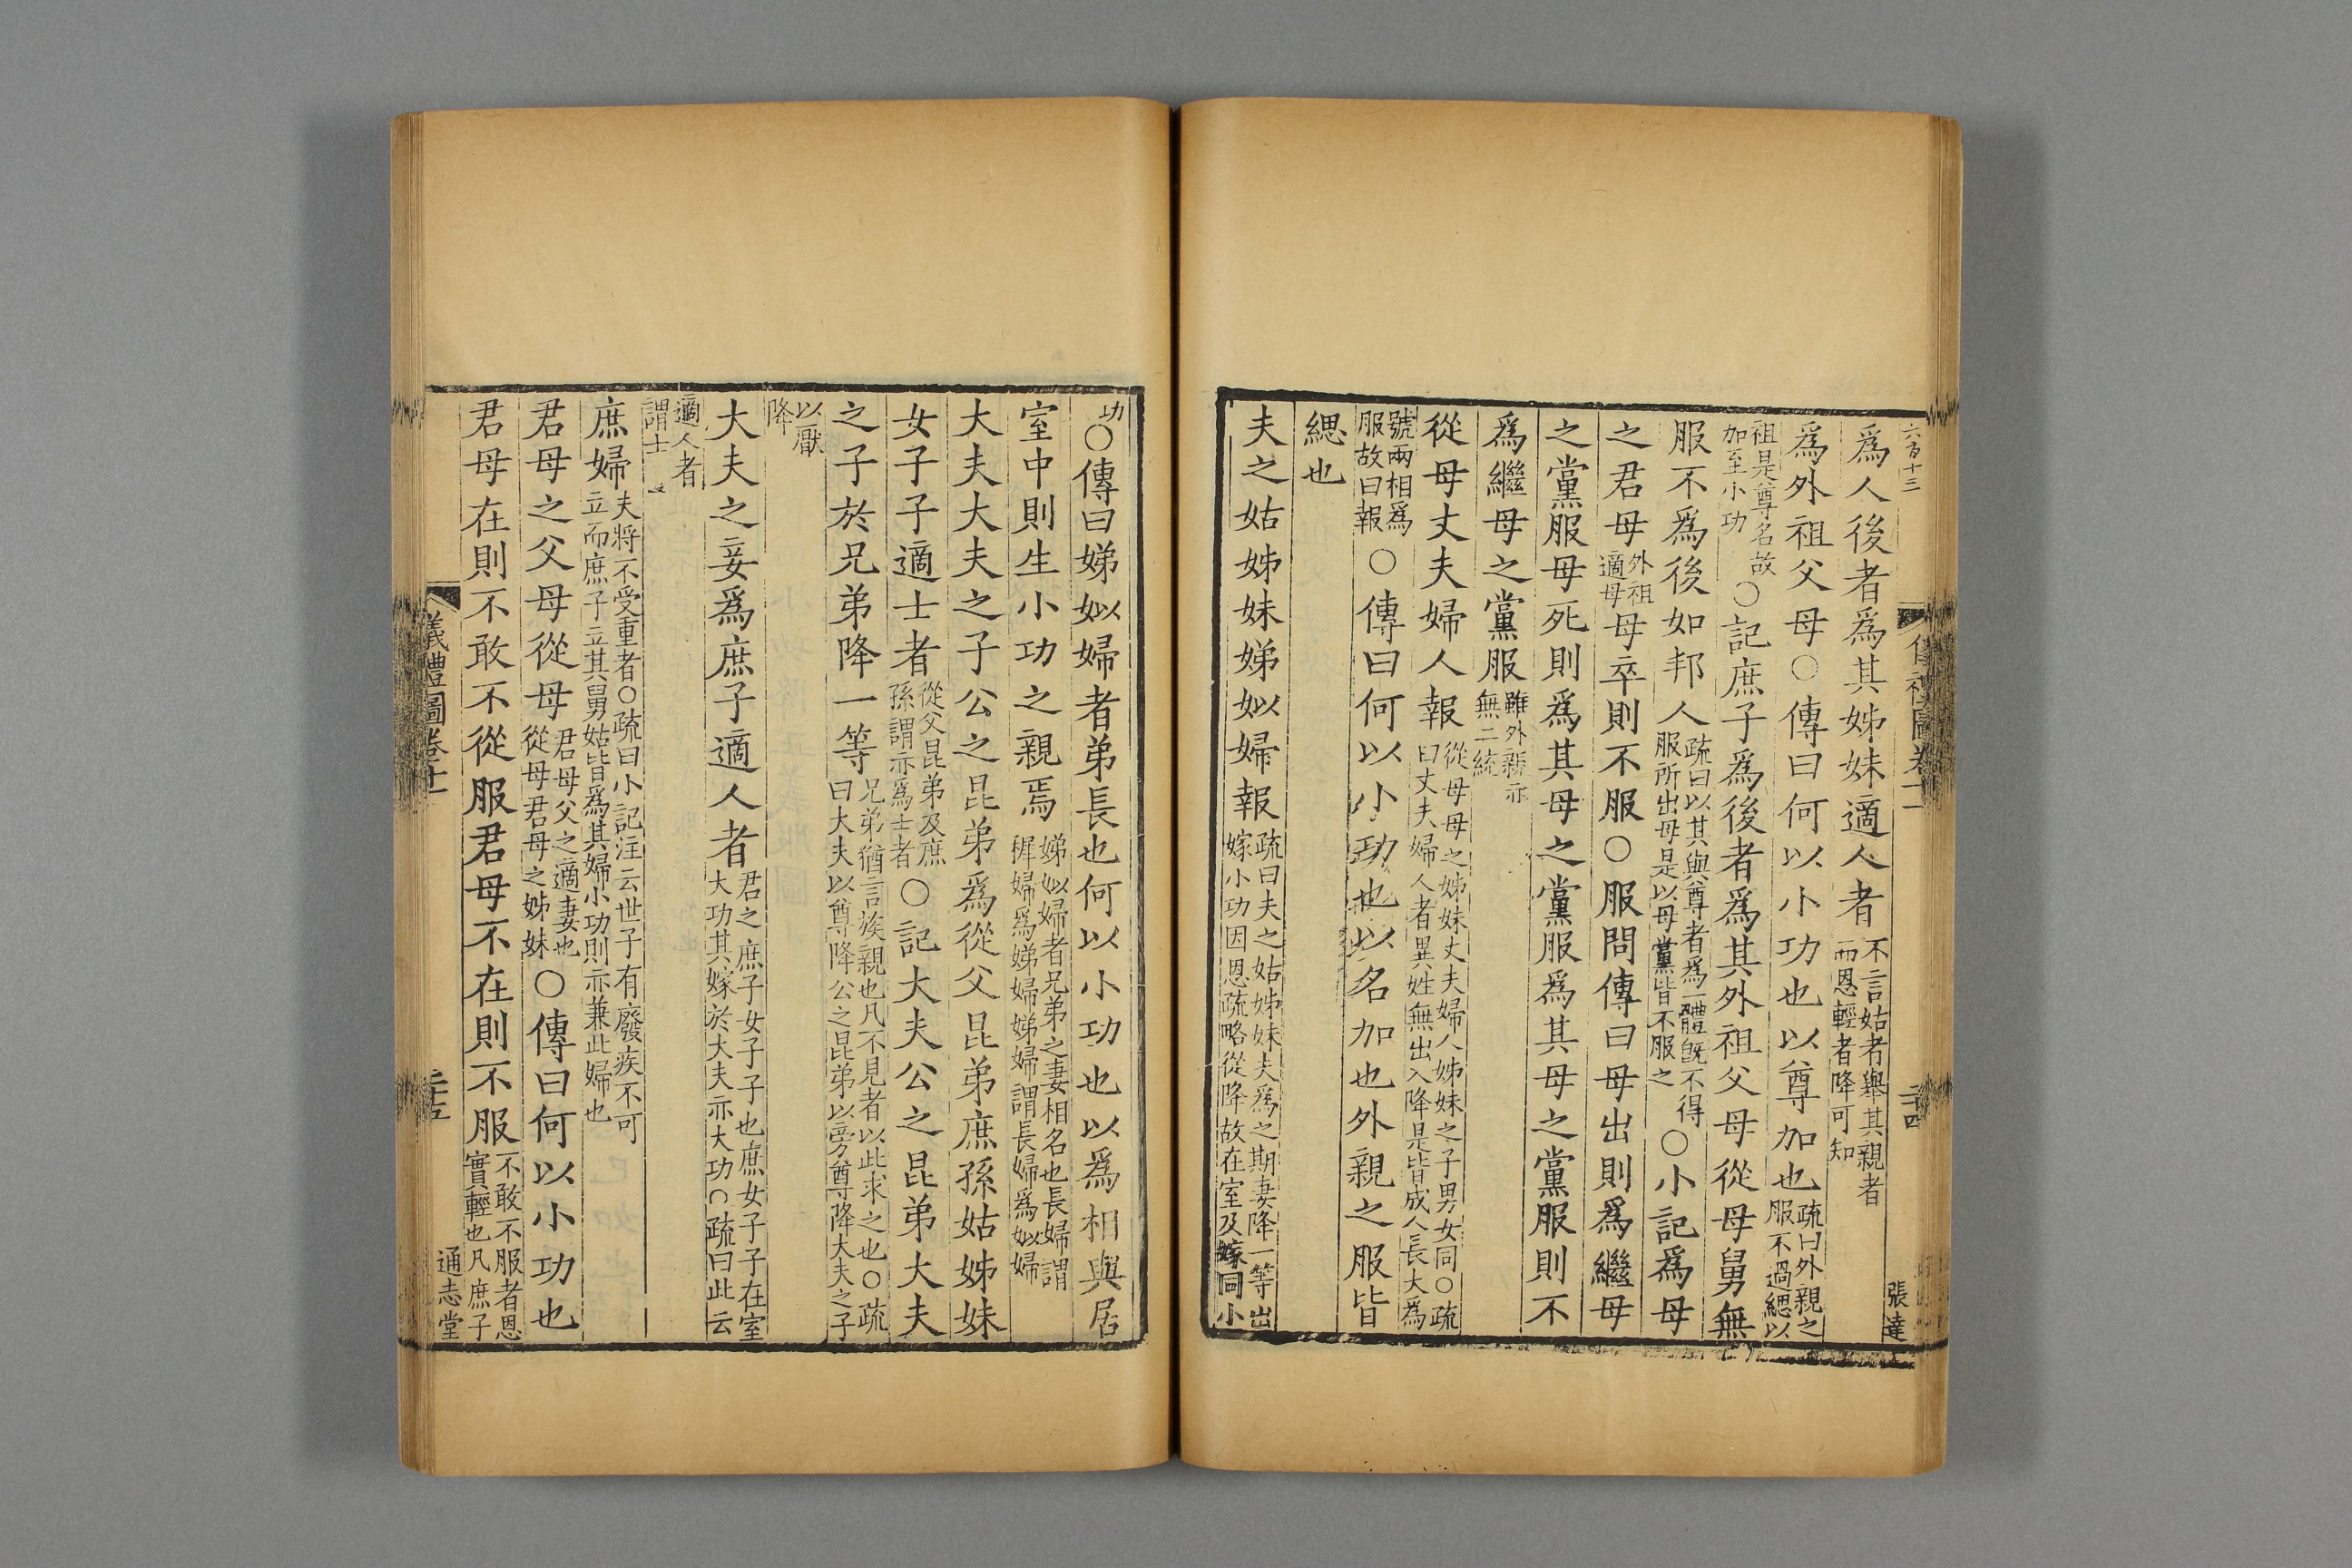 六百十三
爲人後者爲其姊妹適人者不言姑者舉其親者而恩輕者降可知
爲外祖父母○傳曰何以小功也以尊加也疏曰外親之服不過緦以
祖是尊名故加至小功○記庶子爲後者爲其外祖父母從母舅無
服不爲後如邦人疏曰以其與尊者爲一體旣不得服所出母是以母黨皆不服之○小記爲母
之君母外祖適母母卒則不服○服問傳曰母出則爲繼母
之黨服母死則爲其母之黨服爲其母之黨服則不
爲繼母之黨服雖外親亦無二統
從母丈夫婦人報從母母之姊妹丈夫婦人姊妹之子男女同○疏曰丈夫婦人者異姓無出入降是皆成人長大爲
號兩相爲服故曰報○傳曰何以小功也以名加也外親之服皆
緦也
夫之姑姊妹娣姒婦報疏曰夫之姑姊妹夫爲之期妻降一等出嫁小功因恩疏略從降故在室及嫁同小
二十四
張達
功○傳曰娣姒婦者弟長也何以小功也以爲相與居
室中則生小功之親焉娣姒婦者兄弟之妻相名也長婦謂穉婦爲娣婦娣婦謂長婦爲姒婦
大夫大夫之子公之昆弟爲從父昆弟庶孫姑姊妹
女子子適士者從父昆弟及庶孫謂亦爲士者○記大夫公之昆弟大夫
之子於兄弟降一等兄弟猶言族親也凡不見者以此求之也○疏曰大夫以尊降公之昆弟以旁尊降大夫之子
以厭降
大夫之妾爲庶子適人者君之庶子女子子也庶女子子在室大功其嫁於大夫亦大功○疏曰此云
適人者謂士
庶婦夫將不受重者○疏曰小記注云世子有廢疾不可立而庶子立其舅姑皆爲其婦小功則亦兼此婦也
君母之父母從母君母父之適妻也從母君母之姊妹○傳曰何以小功也
君母在則不敢不從服君母不在則不服不敢不服者恩實輕也凡庶子
儀禮圖卷十一
二十五
通志堂